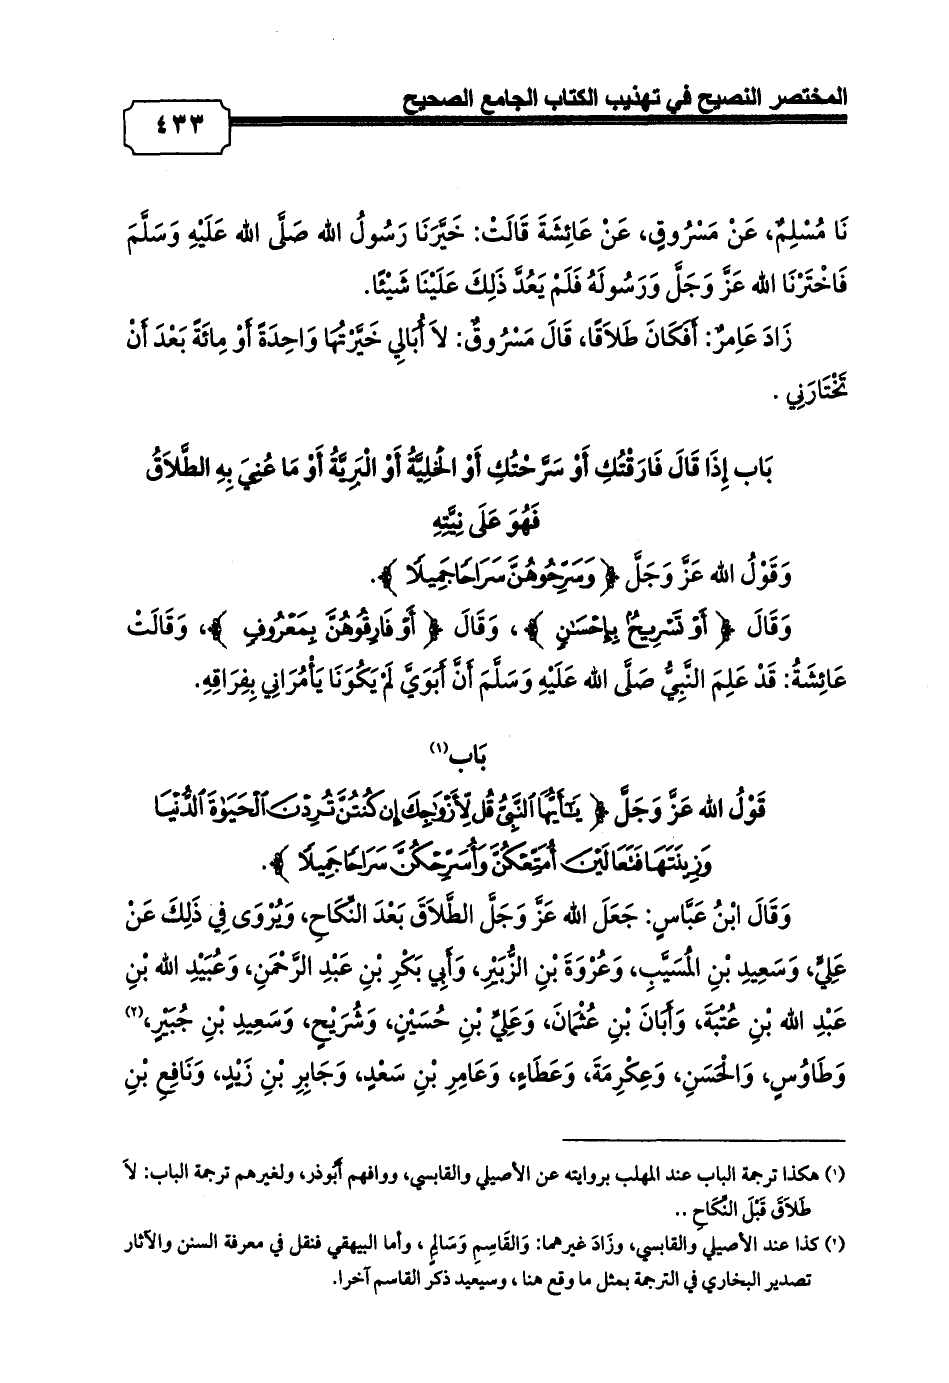 المختصر النصيح في تهذيب الكتاب الجامع الصحيح
٤٣٣
نَا مُسْلِمٌ، عَنْ مَسْرُوقٍ، عَنْ عَائِشَةَ قَالَتْ: خَيَّرَنَا رَسُولُ الله صَلَّى الله عَلَيْهِ وَسَلَّمَ
فَاخْتَرْنَا الله عَزَّ وَجَلَّ وَرَسُولَهُ فَلَمْ يَعُدَّ ذَلِكَ عَلَيْنَا شَيْئًا.
زَادَ عَامِرٌ: أَفَكَانَ طَلَاقًا، قَالَ مَسْرُوقٌ: لاَ أُبَالِي خَيَّرْتُهَا وَاحِدَةً أَوْ مِائَةً بَعْدَ أَنْ
تَخْتَارَنِي .
بَاب إِذَا قَالَ فَارَقْتُكِ أَوْ سَرَّحْتُكِ أَوْ الْخَلِيَّةُ أَوْ الْبَرِيَّةُ أَوْ مَا عُنِيَ بِهِ الطَّلاَقُ
فَهُوَ عَلَى نِيَّتِهِ
وَقَوْلُ الله عَزَّ وَجَلَّ ﴿ وَسَرِّحُوهُنَّ سَرَاحًا جَمِيلًا ﴾.
وَقَالَ ﴿ أَوْ تَسْرِيحٌ بِإِحْسَٰنٍ ﴾ ، وَقَالَ ﴿ أَوْ فَارِقُوهُنَّ بِمَعْرُوفٍ ﴾، وَقَالَتْ
عَائِشَةُ: قَدْ عَلِمَ النَّبِيُّ صَلَّى الله عَلَيْهِ وَسَلَّمَ أَنَّ أَبَوَيَّ لَمْ يَكُونَا يَأْمُرَانِي بِفِرَاقِهِ.
بَاب(١)
قَوْلُ الله عَزَّ وَجَلَّ ﴿ يَٰٓأَيُّهَا ٱلنَّبِيُّ قُل لِّأَزْوَٰجِكَ إِن كُنتُنَّ تُرِدْنَ ٱلْحَيَوٰةَ ٱلدُّنْيَا
وَزِينَتَهَا فَتَعَالَيْنَ أُمَتِّعْكُنَّ وَأُسَرِّحْكُنَّ سَرَاحًا جَمِيلًا ﴾.
وَقَالَ ابْنُ عَبَّاسٍ: جَعَلَ الله عَزَّ وَجَلَّ الطَّلاَقَ بَعْدَ النِّكَاحِ، وَيُرْوَى فِي ذَلِكَ عَنْ
عَلِيٍّ، وَسَعِيدِ بْنِ الْمُسَيَّبِ، وَعُرْوَةَ بْنِ الزُّبَيْرِ، وَأَبِي بَكْرِ بْنِ عَبْدِ الرَّحْمَنِ، وَعُبَيْدِ الله بْنِ
عَبْدِ الله بْنِ عُتْبَةَ، وَأَبَانَ بْنِ عُثْمَانَ، وَعَلِيِّ بْنِ حُسَيْنٍ، وَشُرَيْحٍ، وَسَعِيدِ بْنِ جُبَيْرٍ،(٢)
وَطَاوُسٍ، وَالْحَسَنِ، وَعِكْرِمَةَ، وَعَطَاءٍ، وَعَامِرِ بْنِ سَعْدٍ، وَجَابِرِ بْنِ زَيْدٍ، وَنَافِعِ بْنِ
(١) هكذا ترجمة الباب عند المهلب بروايته عن الأصيلي والقابسي، ووافهم أَبُوذر، ولغيرهم ترجمة الباب: لاَ
طَلاَقَ قَبْلَ النِّكَاحِ ..
(١) كذا عند الأصيلي والقابسي، وزَادَ غيرهما: وَالقَاسِمِ وَسَالمٍ ، وأما البيهقي فنقل في معرفة السنن والآثار
تصدير البخاري في الترجمة بمثل ما وقع هنا ، وسيعيد ذكر القاسم آخرا.